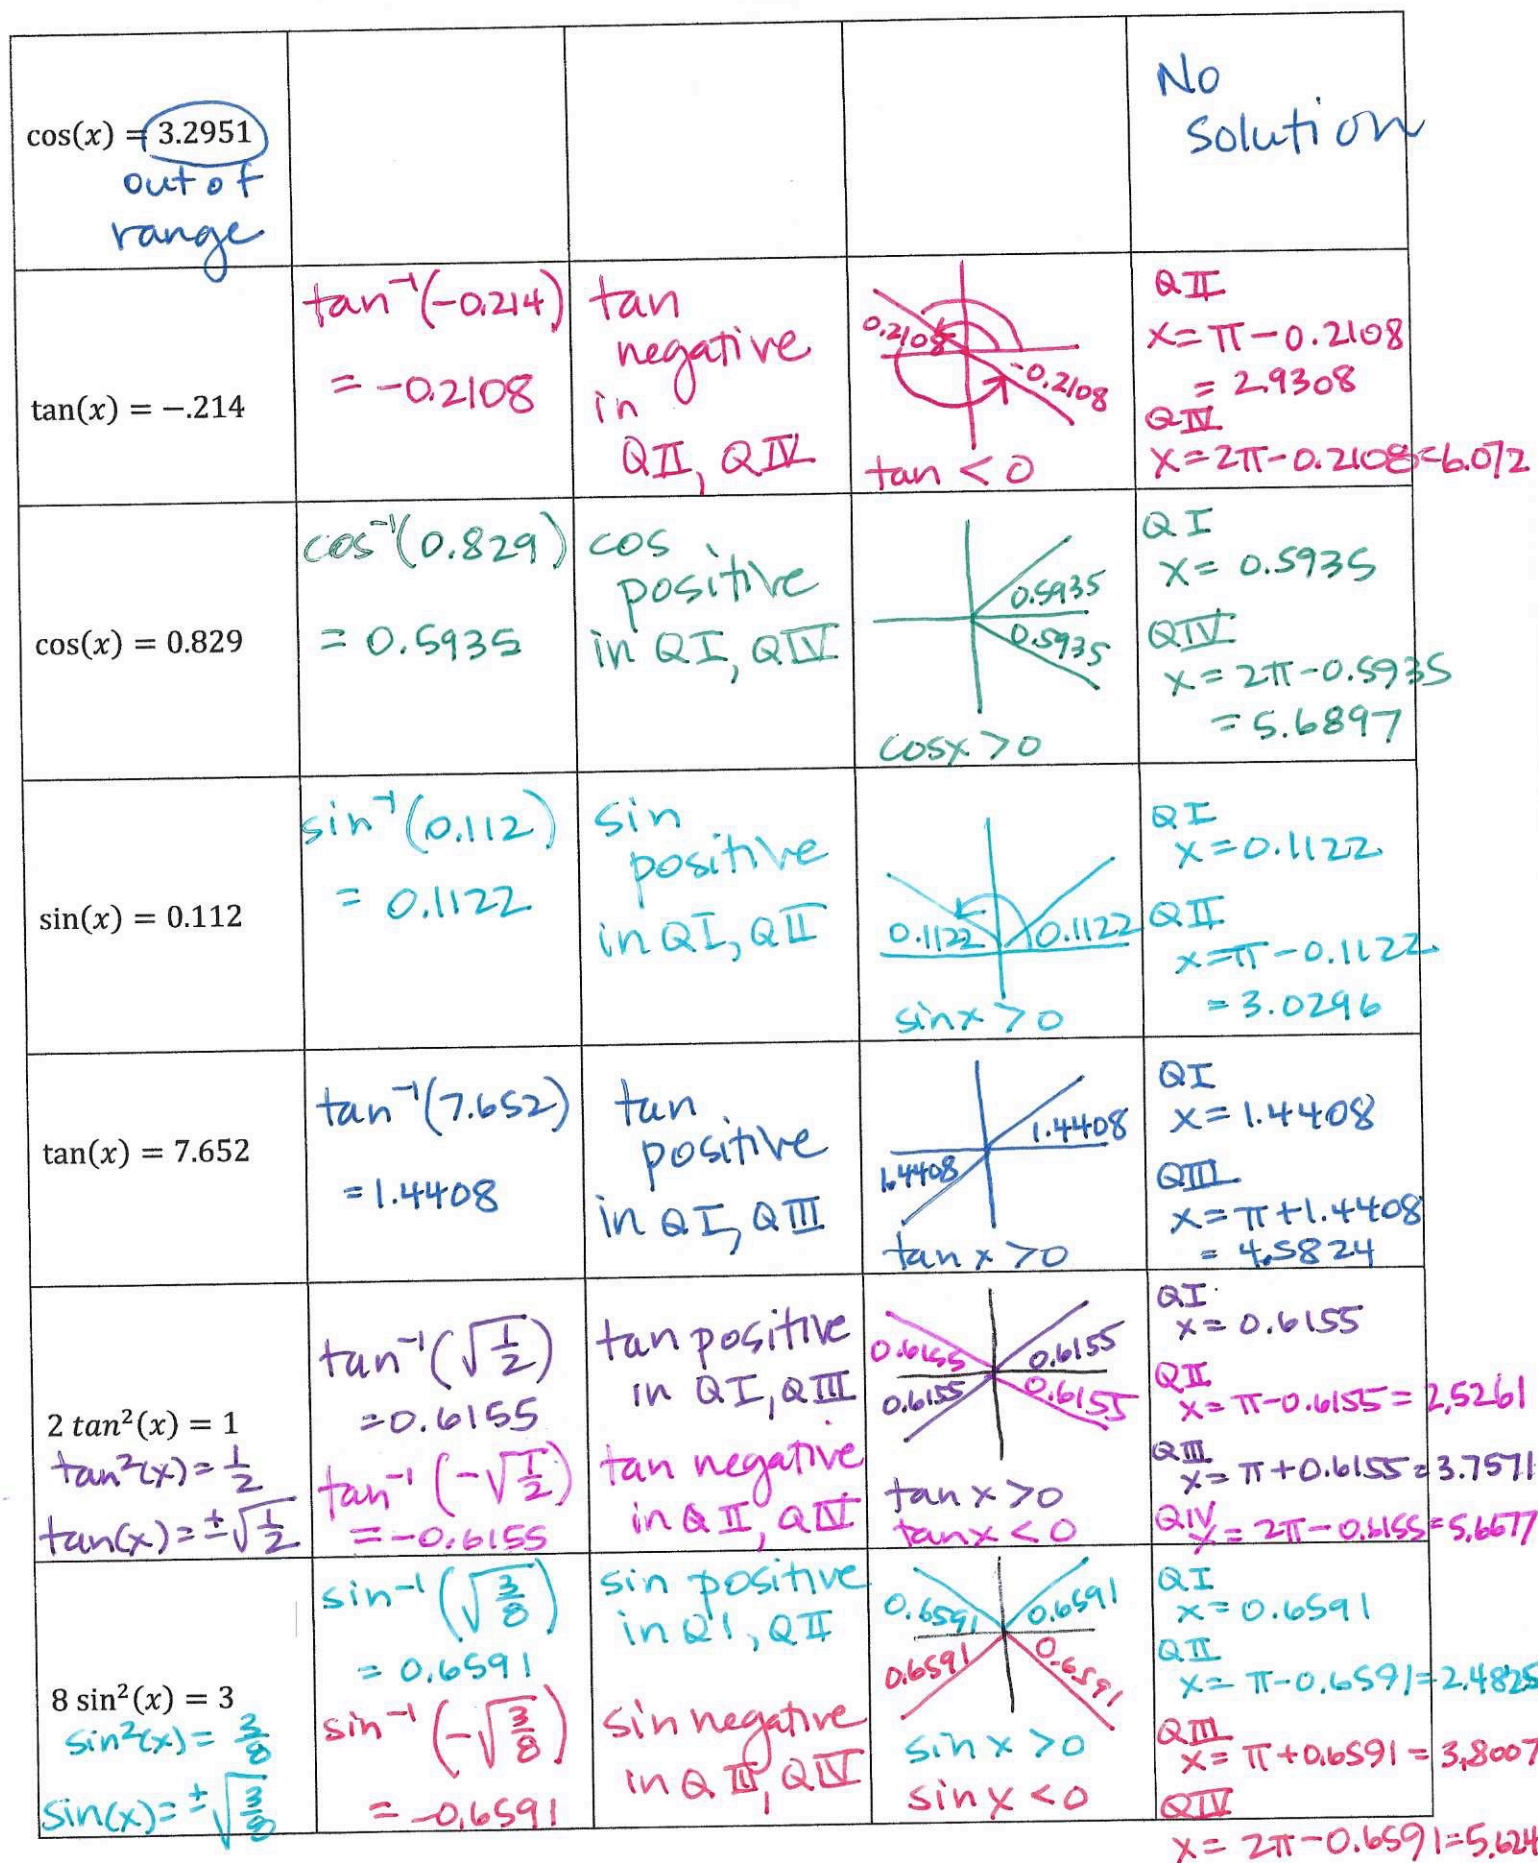 cos(x) = 3.2951
out of
range
No
solution
tan(x) = −.214
tan⁻¹(-0.214)
= -0.2108
tan
negative
in
QII, QIV
0.2108
-0.2108
tan < 0
QII
x = π - 0.2108
= 2.9308
QIV
x = 2π - 0.2108 = 6.072
cos(x) = 0.829
cos⁻¹(0.829)
= 0.5935
cos
positive
in QI, QIV
0.5935
0.5935
cosx > 0
QI
x = 0.5935
QIV
x = 2π - 0.5935
= 5.6897
sin(x) = 0.112
sin⁻¹(0.112)
= 0.1122
sin
positive
in QI, QII
0.1122
0.1122
sinx > 0
QI
x = 0.1122
QII
x = π - 0.1122
= 3.0296
tan(x) = 7.652
tan⁻¹(7.652)
= 1.4408
tan
positive
in QI, QIII
1.4408
1.4408
tan x > 0
QI
x = 1.4408
QIII
x = π + 1.4408
= 4.5824
2 tan²(x) = 1
tan²(x) = 1/2
tan(x) = ±√(1/2)
tan⁻¹(√(1/2))
= 0.6155
tan⁻¹(-√(1/2))
= -0.6155
tan positive
in QI, QIII
tan negative
in QII, QIV
0.6155
0.6155
0.6155
0.6155
tan x > 0
tanx < 0
QI
x = 0.6155
QII
x = π - 0.6155 = 2.5261
QIII
x = π + 0.6155 = 3.7571
QIV
x = 2π - 0.6155 = 5.6677
8 sin²(x) = 3
sin²(x) = 3/8
sin(x) = ±√(3/8)
sin⁻¹(√(3/8))
= 0.6591
sin⁻¹(-√(3/8))
= -0.6591
sin positive
in QI, QII
sin negative
in QIII, QIV
0.6591
0.6591
0.6591
0.6591
sin x > 0
sin x < 0
QI
x = 0.6591
QII
x = π - 0.6591 = 2.4825
QIII
x = π + 0.6591 = 3.8007
QIV
x = 2π - 0.6591 = 5.624